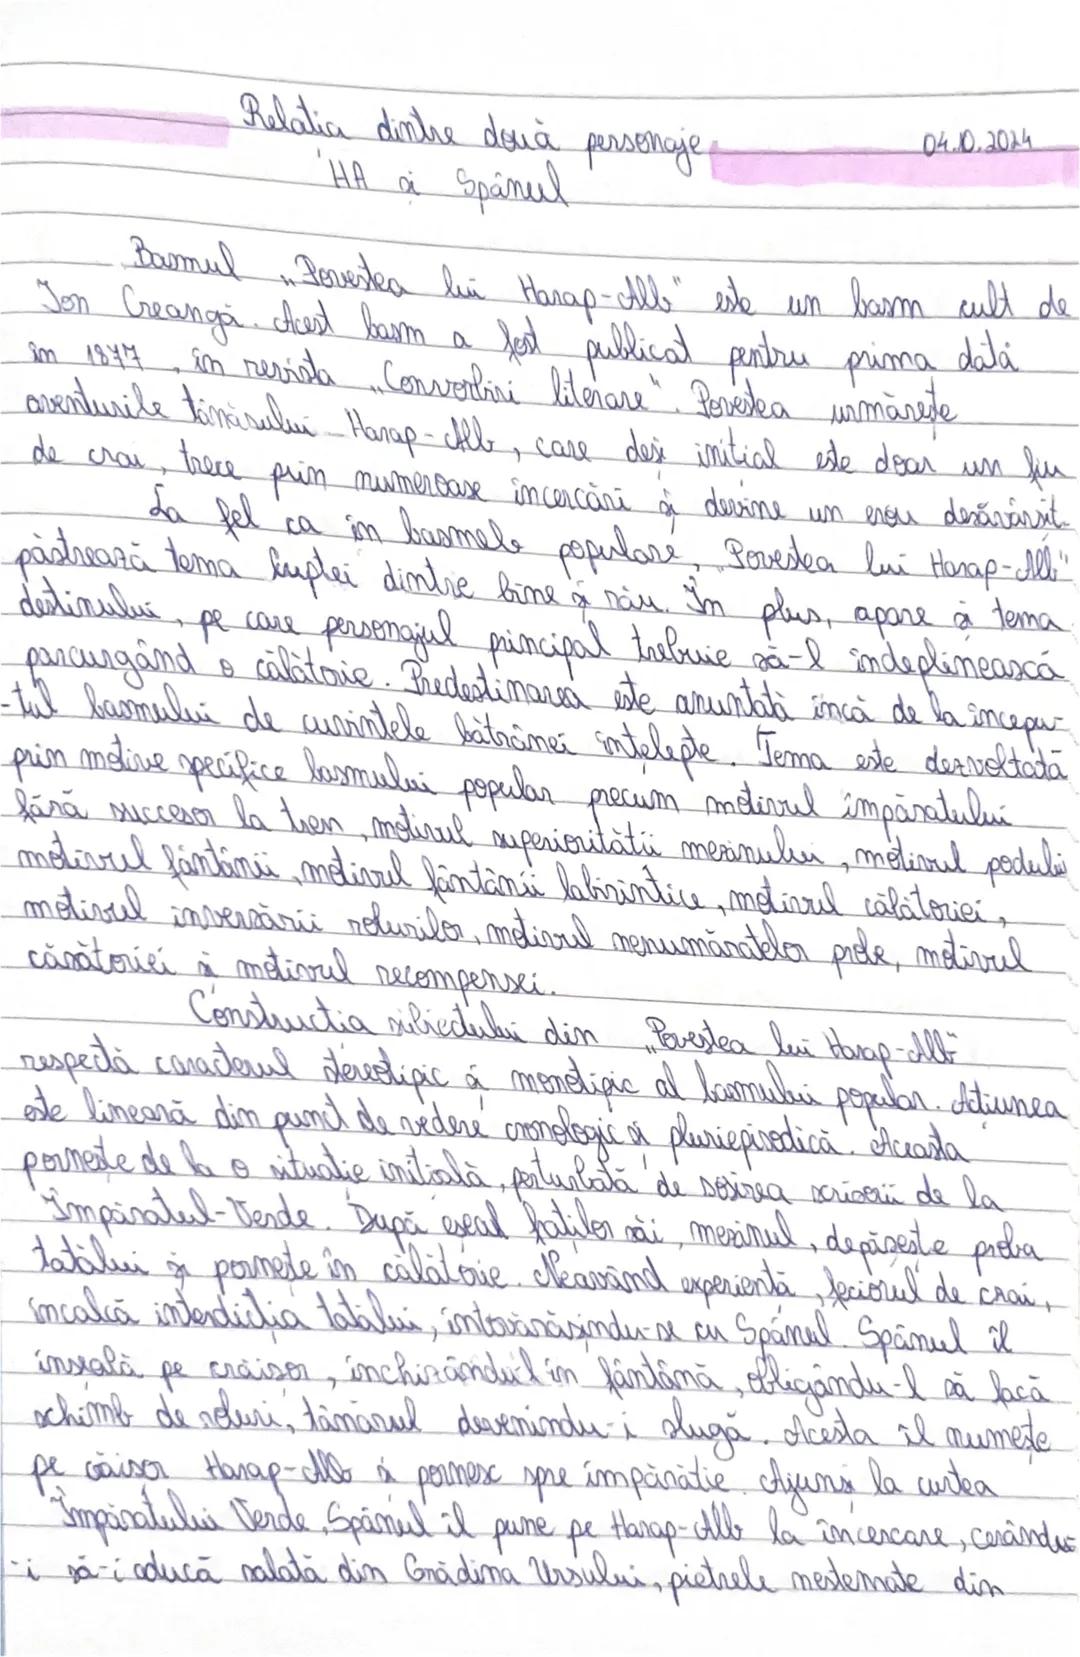 Relatia dintre două personaje
04.10.2024
HA și Spânul
Basmul „Povestea lui Harap-Alb" este un basm cult de
Ion Creangă. Acest basm a fost publicat pentru prima dată
în 1877, în revista „Convorbiri literare". Povestea urmărește
aventurile tânărului Harap-Alb, care deși initial este doar un fiu
de crai, trece prin numeroase încercări și devine un erou desăvârsit.
La fel ca în basmele populare, „Povestea lui Harap-Alb"
păstrează tema luptei dintre bine și rău. În plus, apare și tema
destinului, pe care personajul principal trebuie să-l îndeplinească
parcurgând o călătorie. Predestinarea este anuntată încă de la începu-
-tul basmului de cuvintele bătrânei întelepte. Tema este dezvoltată
prin motive specifice basmului popular precum motivul împăratului
fără succesor la tron, motivul superioritătii mezinului, motivul podului
motivul fântânii, motivul fântânii labirintice, motivul călătoriei,
motivul inversării rolurilor, motivul nenumăratelor probe, motivul
căsătoriei și motivul recompensei.
Constructia subiectului din „Povestea lui Harap-Alb"
respectă caracterul stereotipic și monotipic al basmului popular. Actiunea
este lineară din punct de vedere cronologic și pluriepisodică. Aceasta
pornește de la o situatie initială, perturbată de sosirea scrisorii de la
Împăratul-Verde. După eșecul fratilor săi, mezinul, depășește proba
tatălui și pornește în călătorie. Neavând experientă, feciorul de crai,
încalcă interdictia tatălui, întovărăsindu-se cu Spânul. Spânul îl
însală pe crăisor, închizându-l în fântână, obligându-l să facă
schimb de roluri, tânărul devenindu-i slugă. Acesta îl numește
pe crăișor Harap-Alb și pornesc spre împărătie. Ajunși la curtea
Împăratului Verde, Spânul îl pune pe Harap-Alb la încercare, cerându-
-i să-i aducă salată din Grădina Ursului, pietrele nestemate din